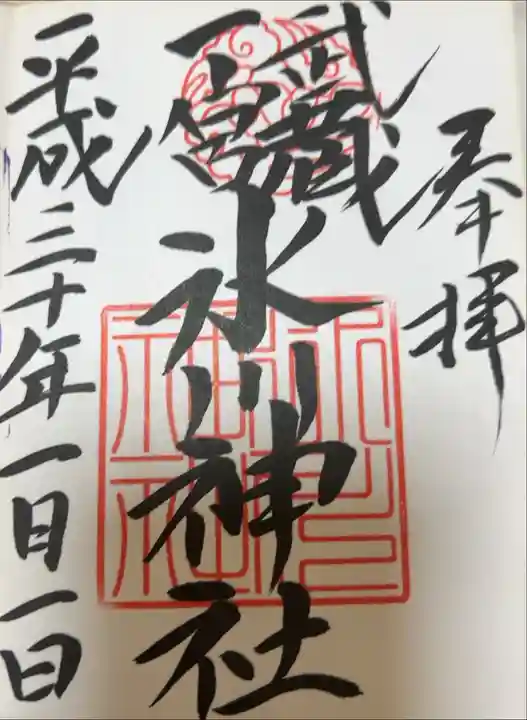 奉拝
武蔵
一宮
氷川神社
平成三十年一月一日